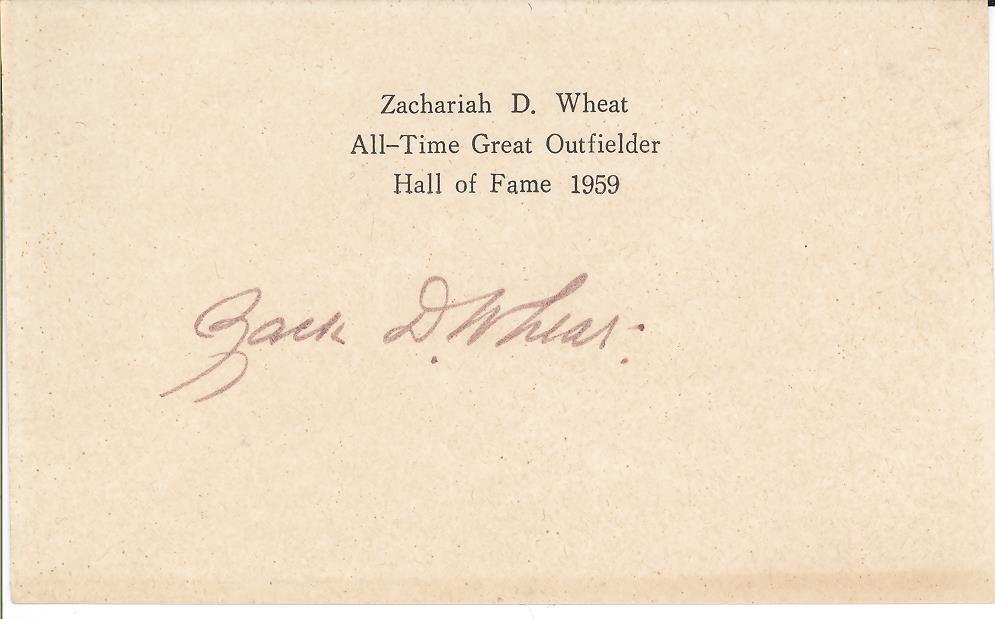 Zachariah D. Wheat
All-Time Great Outfielder
Hall of Fame 1959
Zack D. Wheat.